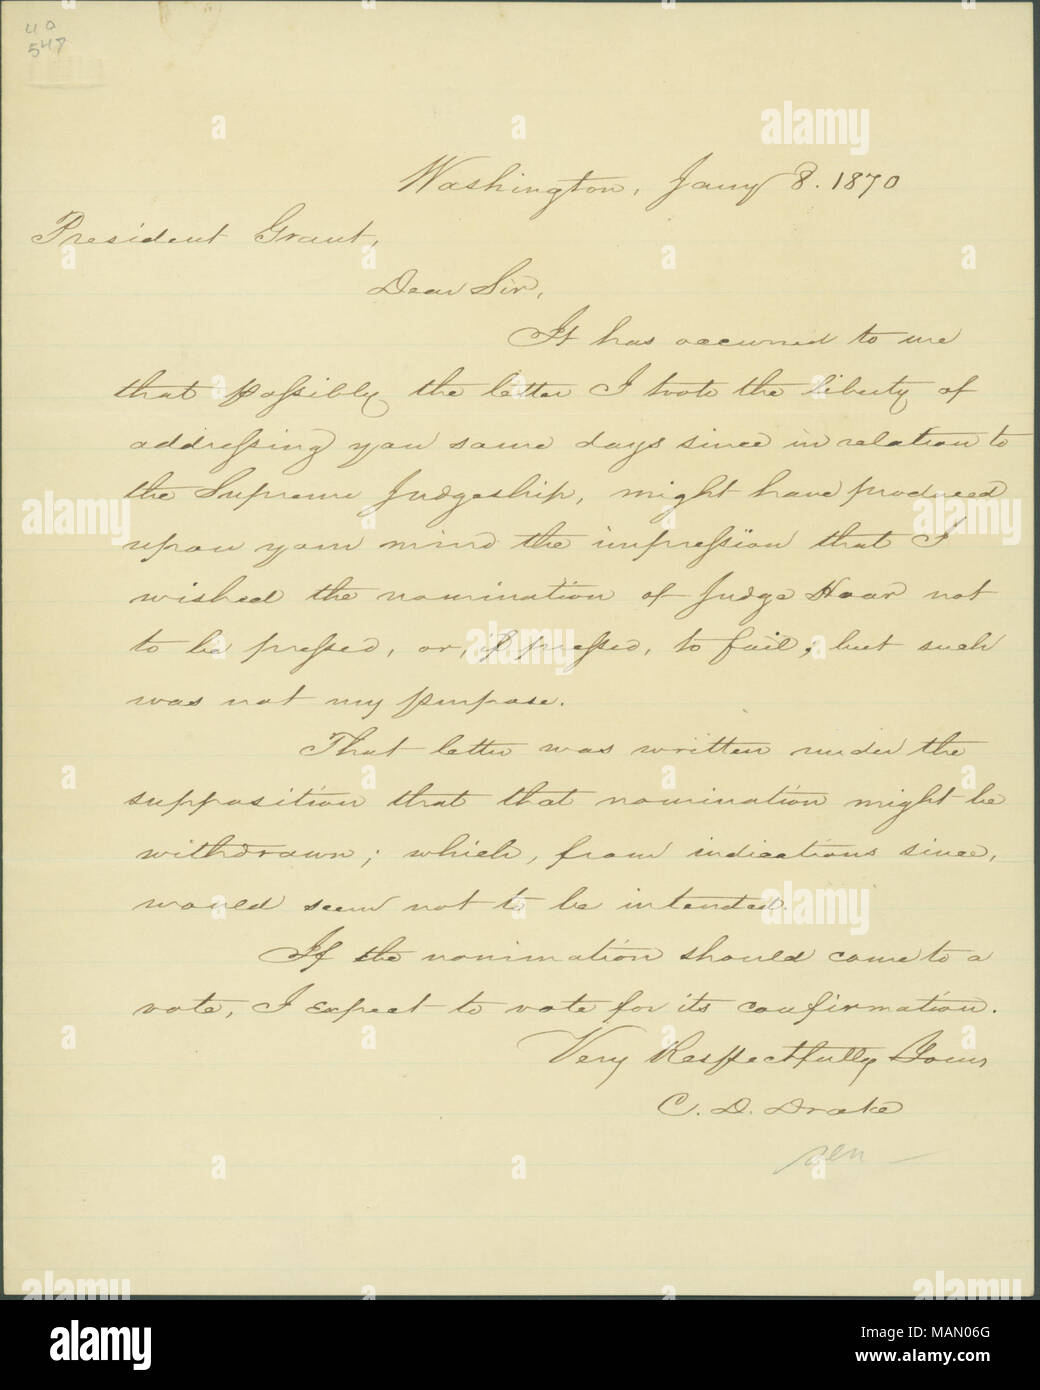 40
547
Washington, Jany 8. 1870
President Grant,
Dear Sir,
It has occurred to me
that possibly the letter I took the liberty of
addressing you some days since in relation to
the Supreme Judgeship, might have produced
upon your mind the impression that I
wished the nomination of Judge Hoar not
to be pressed, or, if pressed, to fail; but such
was not my purpose.
That letter was written under the
supposition that that nomination might be
withdrawn; which, from indications since,
would seem not to be intended.
If the nomination should come to a
vote, I expect to vote for its confirmation.
Very Respectfully Yours
C. D. Drake
Sen
alamy
alamy stock photo
MAN06G
www.alamy.com